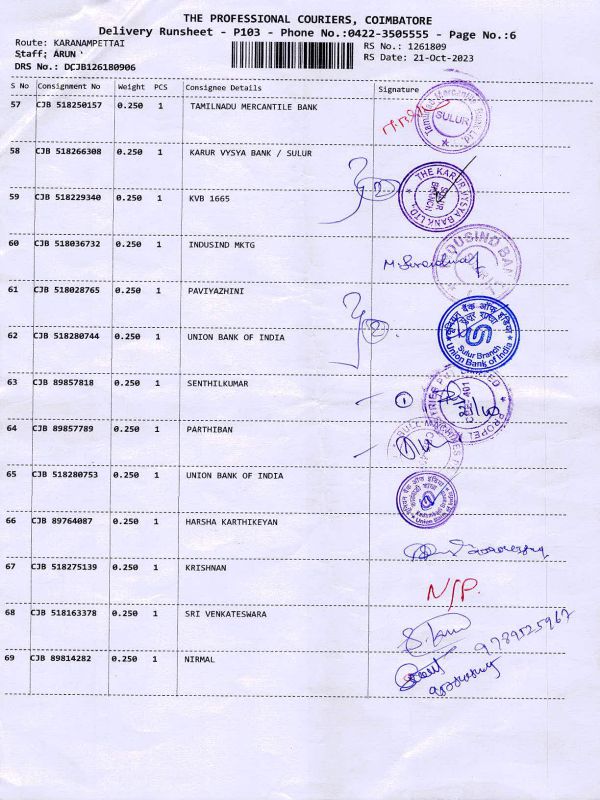 THE PROFESSIONAL COURIERS, COIMBATORE
Delivery Runsheet - P103 - Phone No.:0422-3505555 - Page No.:6
Route: KARANAMPETTAI RS No.: 1261809
Staff: ARUN RS Date: 21-Oct-2023
DRS No.: DCJB126180906
S No Consignment No Weight PCS Consignee Details Signature
57 CJB 518250157 0.250 1 TAMILNADU MERCANTILE BANK
Tamilnad Mercantile Bank Ltd
SULUR
58 CJB 518266308 0.250 1 KARUR VYSYA BANK / SULUR
THE KARUR VYSYA BANK LTD.,
SULUR
BRANCH
59 CJB 518229340 0.250 1 KVB 1665
60 CJB 518036732 0.250 1 INDUSIND MKTG
INDUSIND BANK
61 CJB 518028765 0.250 1 PAVIYAZHINI
62 CJB 518280744 0.250 1 UNION BANK OF INDIA
यूनियन बैंक ऑफ इंडिया
Sulur Branch
Union Bank of India
63 CJB 89857818 0.250 1 SENTHILKUMAR
1
PROPEL
64 CJB 89857789 0.250 1 PARTHIBAN
65 CJB 518280753 0.250 1 UNION BANK OF INDIA
यूनियन बैंक ऑफ इंडिया
Union Bank of India
66 CJB 89764087 0.250 1 HARSHA KARTHIKEYAN
67 CJB 518275139 0.250 1 KRISHNAN
N/P.
68 CJB 518163378 0.250 1 SRI VENKATESWARA
9789525967
69 CJB 89814282 0.250 1 NIRMAL